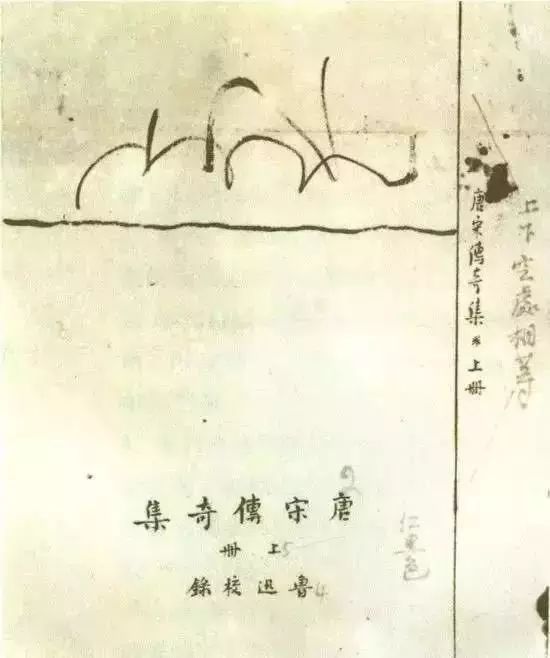 上下空處相等
唐宋傳奇集 * 上册
2
唐宋傳奇集
上册 5
魯迅校錄 4